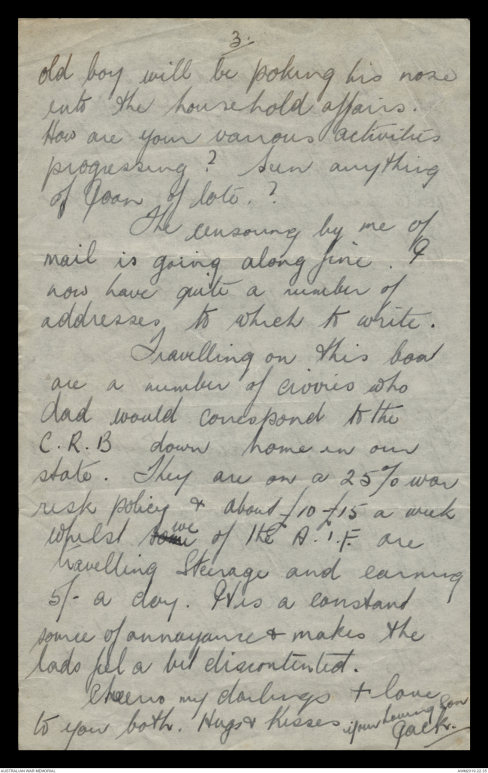 3.
old boy will be poking his nose
into the household affairs.
How are your various activities
progressing? Seen anything
of Joan of late.?
The censoring by me of
mail is going along fine. I
now have quite a number of
addresses to which to write.
Travelling on this boat
are a number of civvies who
dad would correspond to the
C.R.B down home in our
state. They are on a 25% war
risk policy & about £10-£15 a week
whilst some we of the A.I.F. are
travelling Steerage and earning
5/- a day. It is a constant
source of annoyance & makes the
lads feel a bit discontented.
Cheerio my darlings + love
to you both. Hugs & Kisses
your loving son
Jack.
AUSTRALIAN WAR MEMORIAL